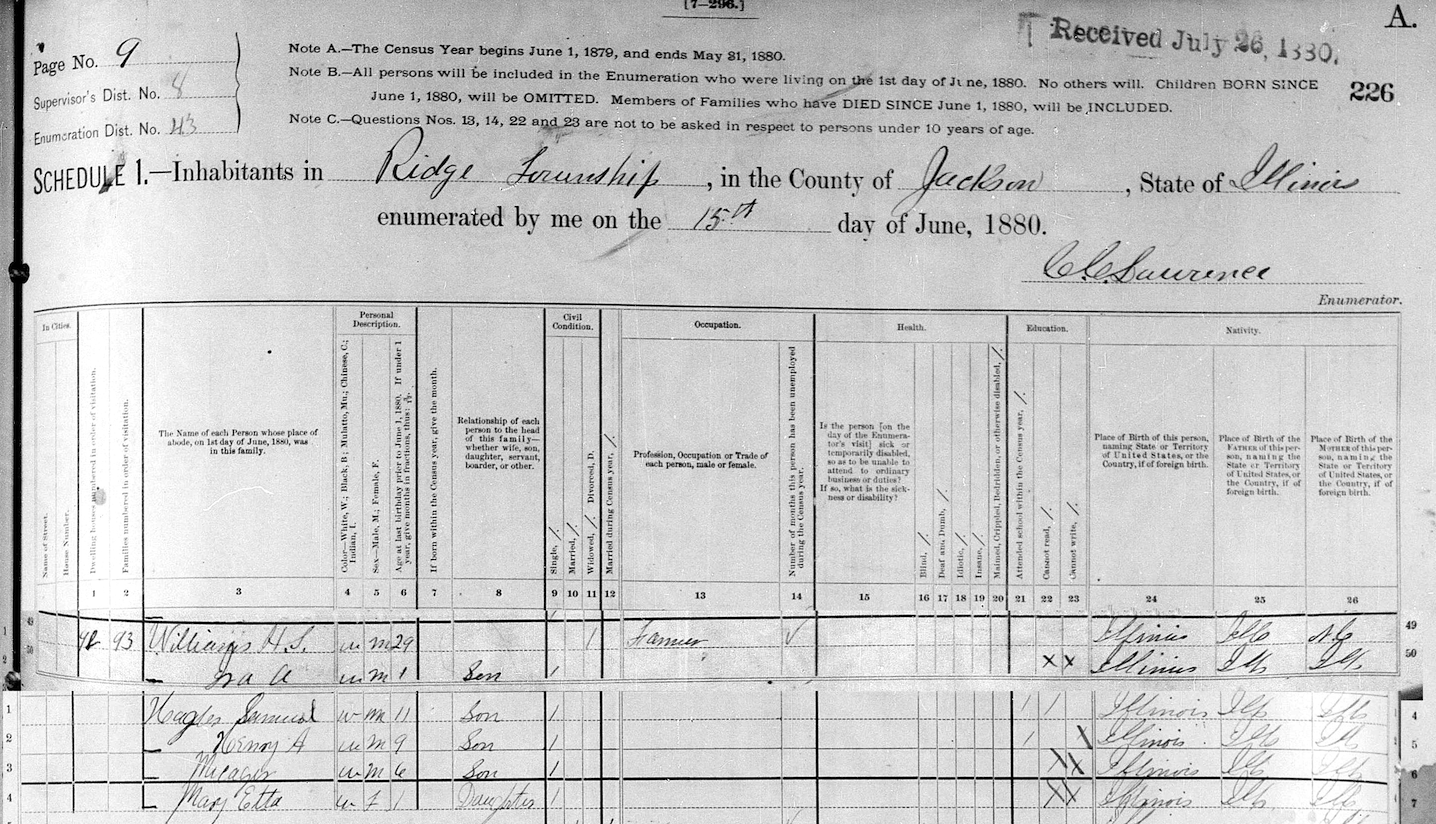 [7-296.]
A.
Page No. 9
Supervisor's Dist. No. 8
Enumeration Dist. No. 43
Note A.—The Census Year begins June 1, 1879, and ends May 31, 1880.
Note B.—All persons will be included in the Enumeration who were living on the 1st day of June, 1880. No others will. Children BORN SINCE
June 1, 1880, will be OMITTED. Members of Families who have DIED SINCE June 1, 1880, will be INCLUDED.
Note C.—Questions Nos. 13, 14, 22 and 23 are not to be asked in respect to persons under 10 years of age.
Received July 26, 1880.
226
SCHEDULE 1.—Inhabitants in Ridge Township, in the County of Jackson, State of Illinois
enumerated by me on the 15th day of June, 1880.
C.C. Lawrence
Enumerator.
In Cities.
Name of Street.
House Number.
Dwelling houses numbered in order of visitation.
Families numbered in order of visitation.
The Name of each Person whose place of
abode, on 1st day of June, 1880, was
in this family.
Personal
Description.
Color—White, W.; Black, B.; Mulatto, Mu.; Chinese, C.;
Indian, I.
Sex—Male, M.; Female, F.
Age at last birthday prior to June 1, 1880. If under 1
year, give months in fractions, thus:
If born within the Census year, give the month.
Relationship of each
person to the head
of this family—
whether wife, son,
daughter, servant,
boarder, or other.
Civil
Condition.
Single, /.
Married, /.
Widowed, /. Divorced, D.
Married during Census year, /.
Occupation.
Profession, Occupation or Trade of
each person, male or female.
Number of months this person has been unemployed
during the Census year.
Health.
Is the person [on the
day of the Enumera-
tor's visit] sick or
temporarily disabled,
so as to be unable to
attend to ordinary
business or duties?
If so, what is the sick-
ness or disability?
Blind, /.
Deaf and Dumb, /.
Idiotic, /.
Insane, /.
Maimed, Crippled, Bedridden, or otherwise disabled, /.
Education.
Attended school within the Census year, /.
Cannot read, /.
Cannot write, /.
Nativity.
Place of Birth of this person,
naming State or Territory
of United States, or the
Country, if of foreign birth.
Place of Birth of the
FATHER of this per-
son, naming the
State or Territory
of United States, or
the Country, if of
foreign birth.
Place of Birth of the
MOTHER of this per-
son, naming the
State or Territory
of United States, or
the Country, if of
foreign birth.
1 2 3 4 5 6 7 8 9 10 11 12 13 14 15 16 17 18 19 20 21 22 23 24 25 26
1 49 92 93 Williams H. S. W M 29 / Farmer √ Illinois Ills N.C 49
2 50 — Ira A W M 1 Son / X X Illinois Ills Ills 50
1 Hagler Samuel W M 11 Son / / / Illinois Ills Ills 4
2 — Henry A W M 9 Son / / X Illinois Ills Ills 5
3 — W M 6 Son / X X Illinois Ills Ills 6
4 — Mary Etta W F 1 Daughter / X X Illinois Ills Ills 7